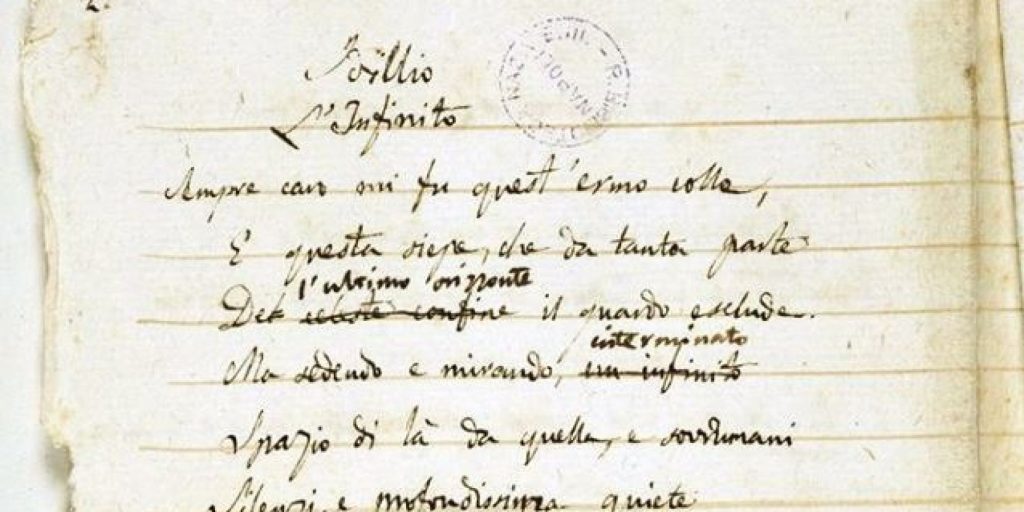 2.
Idillio
L'Infinito
Sempre caro mi fu quest'ermo colle,
E questa siepe, che da tanta parte
l'ultimo orizzonte
Del celeste confine il guardo esclude.
interminato
Ma sedendo e mirando, un infinito
Spazio di là da quella, e sovrumani
Silenzi, e profondissima quiete